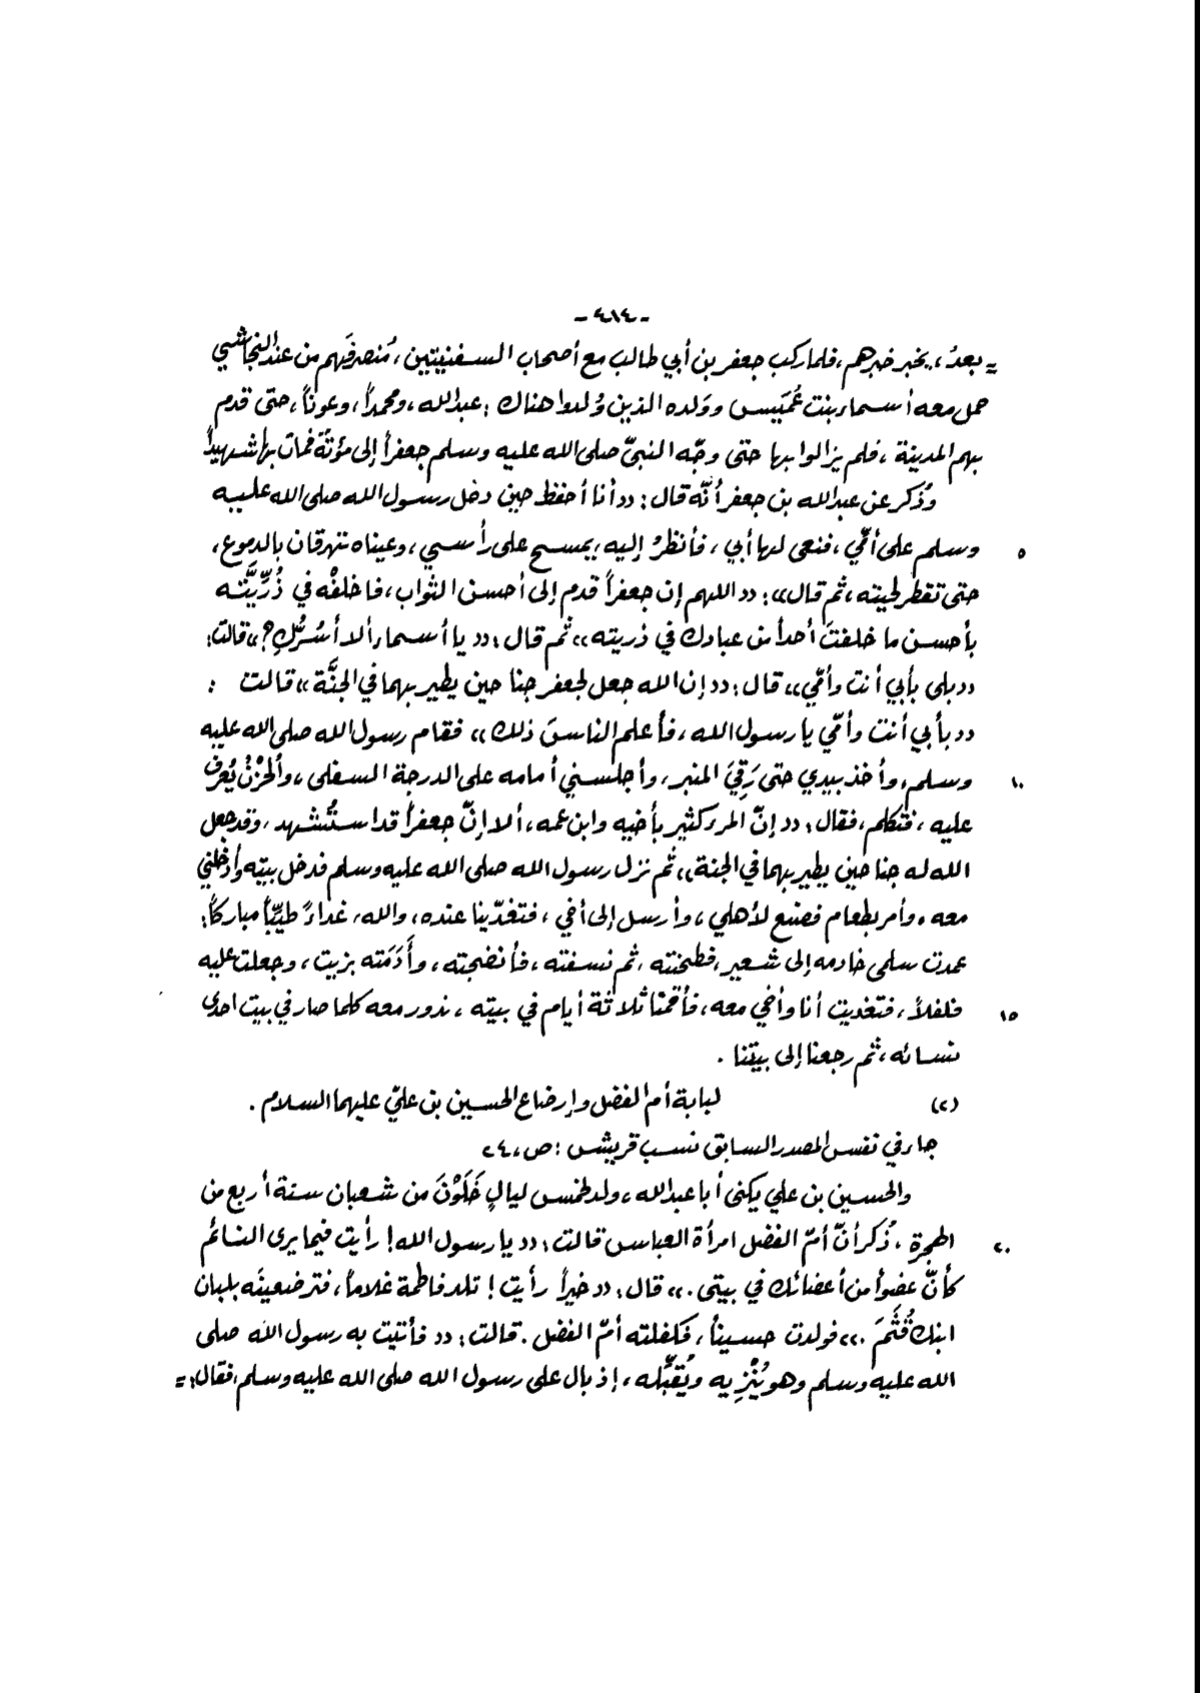 - ٤١٤ -
= بعدُ، يخبر خبرهم، فلما ركب جعفر بن أبي طالب مع أصحاب السفينتين، مُنصرفَهم من عند النجاشي
حمل معه أسماء بنت عُمَيس وولده الذين وُلدوا هناك: عبدالله، ومحمداً، وعوناً، حتى قدم
بهم المدينة، فلم يزالوا بها حتى وجّه النبيّ صلى الله عليه وسلم جعفراً إلى مؤتة فمات بها شهيداً
وذُكر عن عبدالله بن جعفر أنّه قال: «أنا أحفظ حين دخل رسول الله صلى الله عليه
٥ وسلم على أمّي، فنعى لها أبي، فأنظرُ إليه يمسح على رأسي، وعيناه تهرقان بالدموع،
حتى تقطر لحيته، ثم قال»: «اللهم إن جعفراً قدم إلى أحسن الثواب، فاخلفْه في ذُرِّيَّته
بأحسن ما خلفتَ أحداً من عبادك في ذريته» ثم قال: «يا أسماء ألا أسُرُّكِ؟» قالت:
«بلى بأبي أنت وأمّي» قال: «إن الله جعل لجعفر جناحين يطير بهما في الجنَّة» قالت :
«بأبي أنت وأمّي يا رسول الله، فأعلم الناسَ ذلك» فقام رسول الله صلى الله عليه
١٠ وسلم، وأخذ بيدي حتى رَقِيَ المنبر، وأجلسني أمامه على الدرجة السفلى، والحُزْنُ يُعرف
عليه، فتكلم، فقال: «إنّ المرء كثير بأخيه وابن عمه، ألا إنّ جعفراً قد استُشهد، وقد جعل
الله له جناحين يطير بهما في الجنة» ثم نزل رسول الله صلى الله عليه وسلم فدخل بيته وأدخلني
معه، وأمر بطعام فصنع لأهلي، وأرسل إلى أخي، فتغدّينا عنده، والله، غداءً طيِّباً مباركاً:
عمدت سلمى خادمه إلى شعير، فطحنته، ثم نسفته، فأنضجته، وأَدَمَته بزيت، وجعلت عليه
١٥ فلفلاً، فتغديت أنا وأخي معه، فأقمنا ثلاثة أيام في بيته، ندور معه كلما صار في بيت احدى
نسائه، ثم رجعنا إلى بيتنا .
(٢) لبابة أم الفضل وإرضاع الحسين بن عليّ عليهما السلام .
جاء في نفس المصدر السابق نسب قريش: ص، ٢٤
والحسين بن علي يكنى أبا عبدالله، ولد لخمس ليالٍ خَلَوْنَ من شعبان سنة أربع من
٢٠ الهجرة، ذُكر أنّ أمّ الفضل امرأة العباس قالت: «يا رسول الله! رأيت فيما يرى النائم
كأنّ عضواً من أعضائك في بيتي.» قال: «خيراً رأيت! تلد فاطمة غلاماً، فترضعينَه بلبان
ابنك قُثَمَ.» فولدت حسيناً، فكفلته أمّ الفضل. قالت: «فأتيت به رسول الله صلى
الله عليه وسلم وهو يُنْزِيه ويُقَبِّله، إذ بال على رسول الله صلى الله عليه وسلم، فقال: =